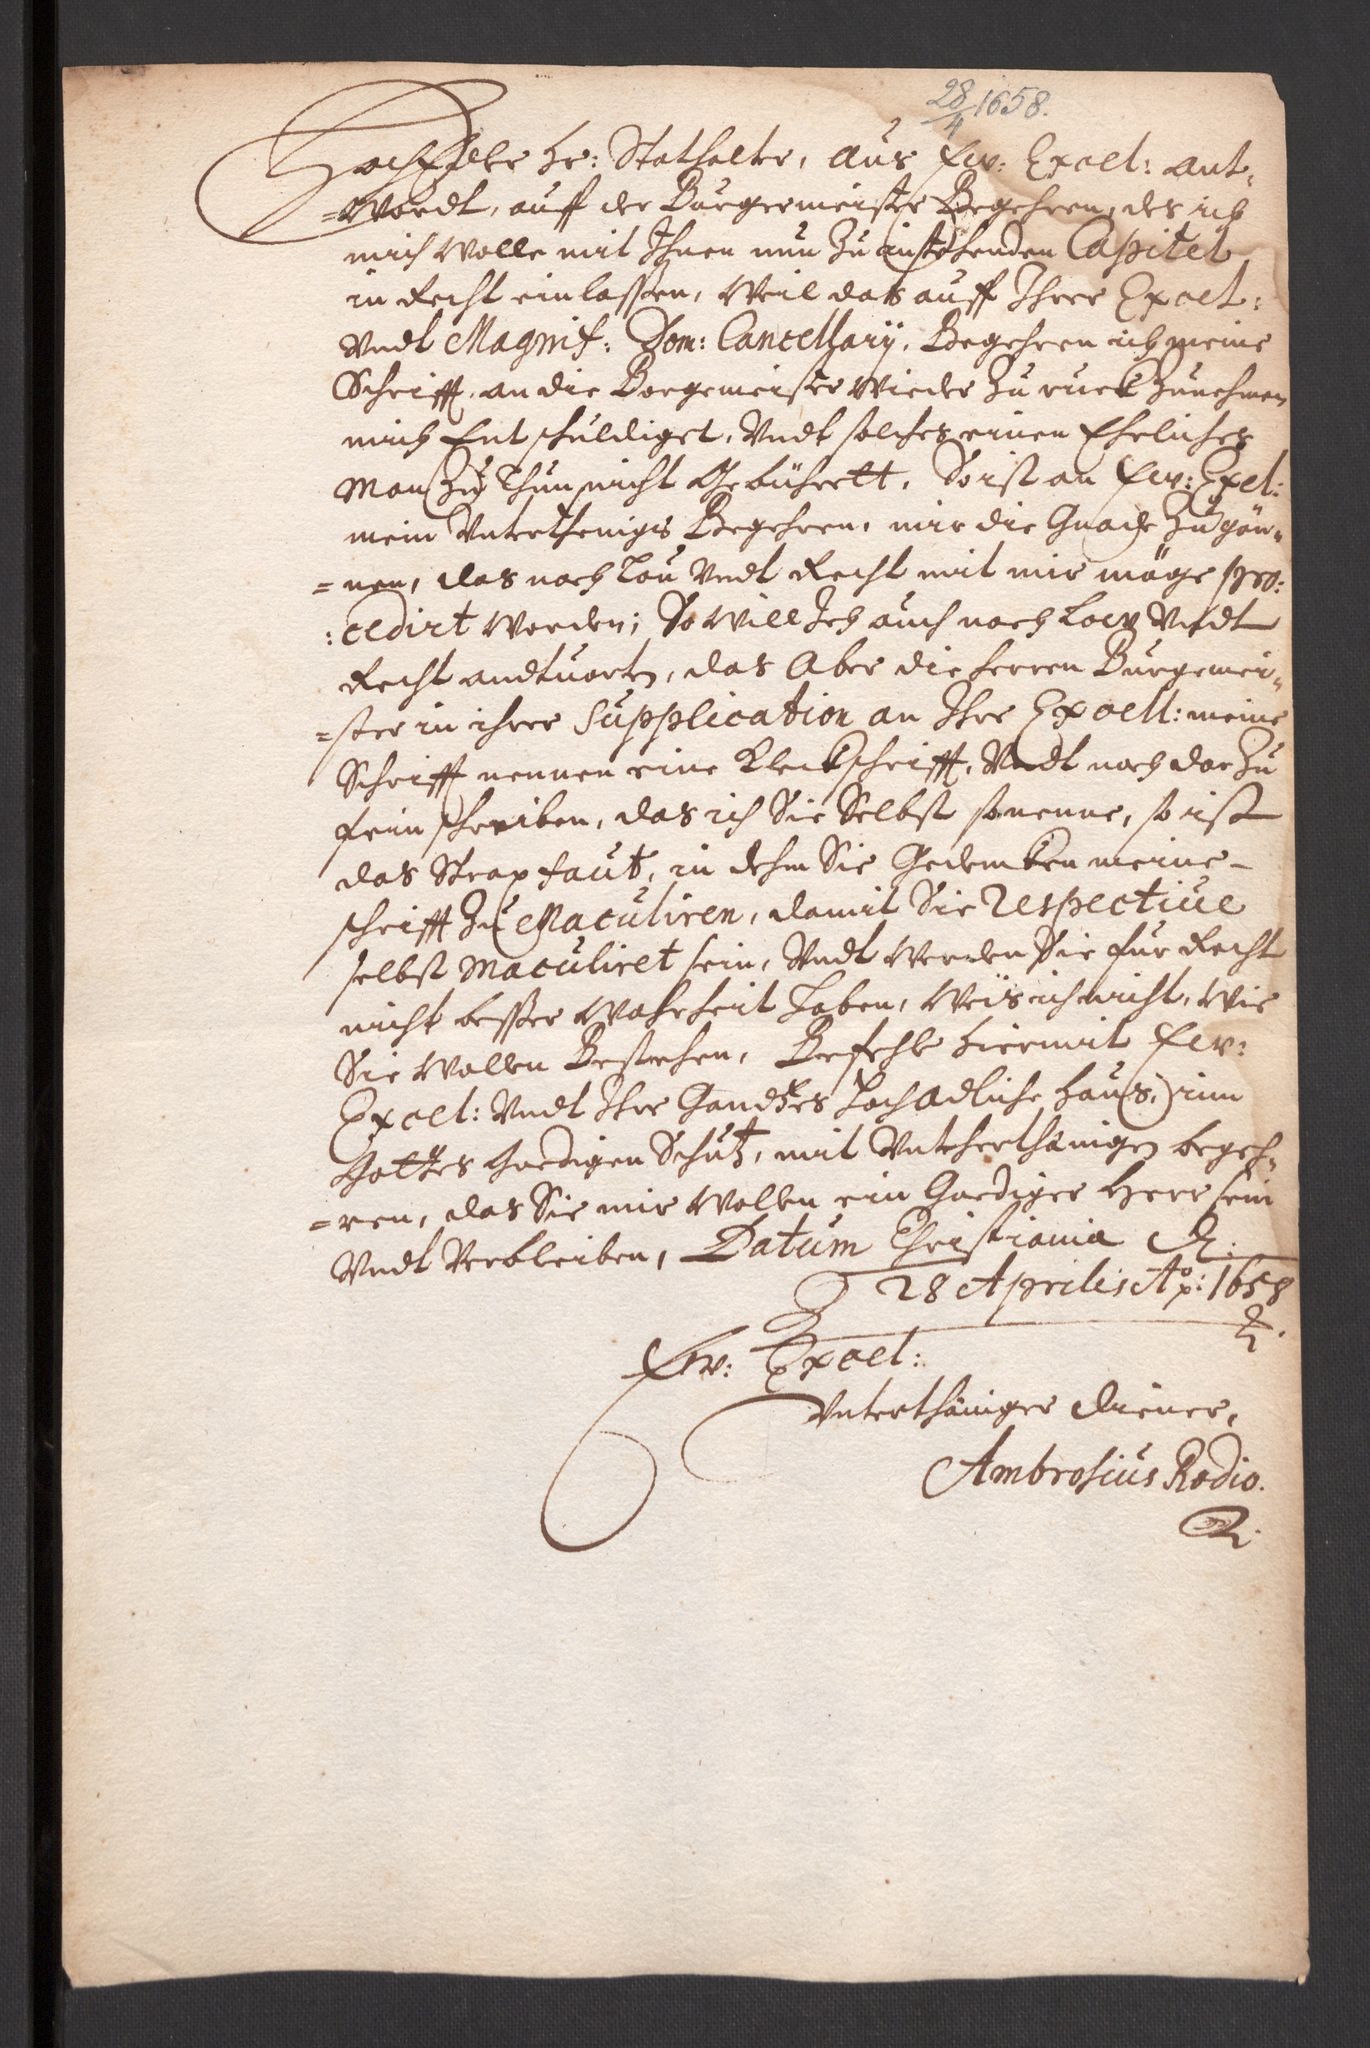 28/4 1658.
HochEdler Hr: Stathalter, Aus Ew: Excel: ant-
=Wordt, auff der Burgermeister Begehren, das ich
mich wolle mit Ihnen nun Zu instehenden Capitel
in Recht einlassen, Weil das auff Ihrer Excel:
Vndt Magnif: Dom: Cancellarÿ, Begehren ich meine
Schrifft, an die Borgemeister Wieder Zu ruck Zunehmen
mich Entschuldiget, Vndt solches einen Ehrliches
Man Zu Thun nicht Gebührett, So ist an Ew: Exel:
mein Vnterthenigs Begehren, mir die Gnade Zu gön-
=nen, das nach Lou Vndt Recht mit mir möge pro:
:cedirt Werden; So Will Ich auch nach Low Vndt
Recht andtworten, das Aber die Herren Burgemei-
=ster in ihrer Supplication an Ihr Excell: meine
Schrifft nennen eine Kleckschrifft, Vndt noch dar Zu
sein schreiben, das ich Sie Selbst so nenne, so ist
das Straffaut, in dehm Sie Gedencken meine
schrifft Zu Maculiren, damit Sie respective
selbst maculiret sein, Vndt Werden Sie für Recht
nicht besser Wahrheit haben, Weis ich nicht, Wie
Sie Wollen Bestehen, Befehle hiermit Ew:
Excel: Vndt Ihr Gandtzes Hochadliche Haus, inn
Gottes Gnedigen Schutz, mit Vnterthänigen begeh-
=ren, das Sie mir Wollen ein Gnediger Herr sein
Vndt Verbleiben, Datum Christiania d:
28 Aprilis Ao: 1658
Ew: Excel:
Vnterthäniger Diener,
Ambrosius Rodio.